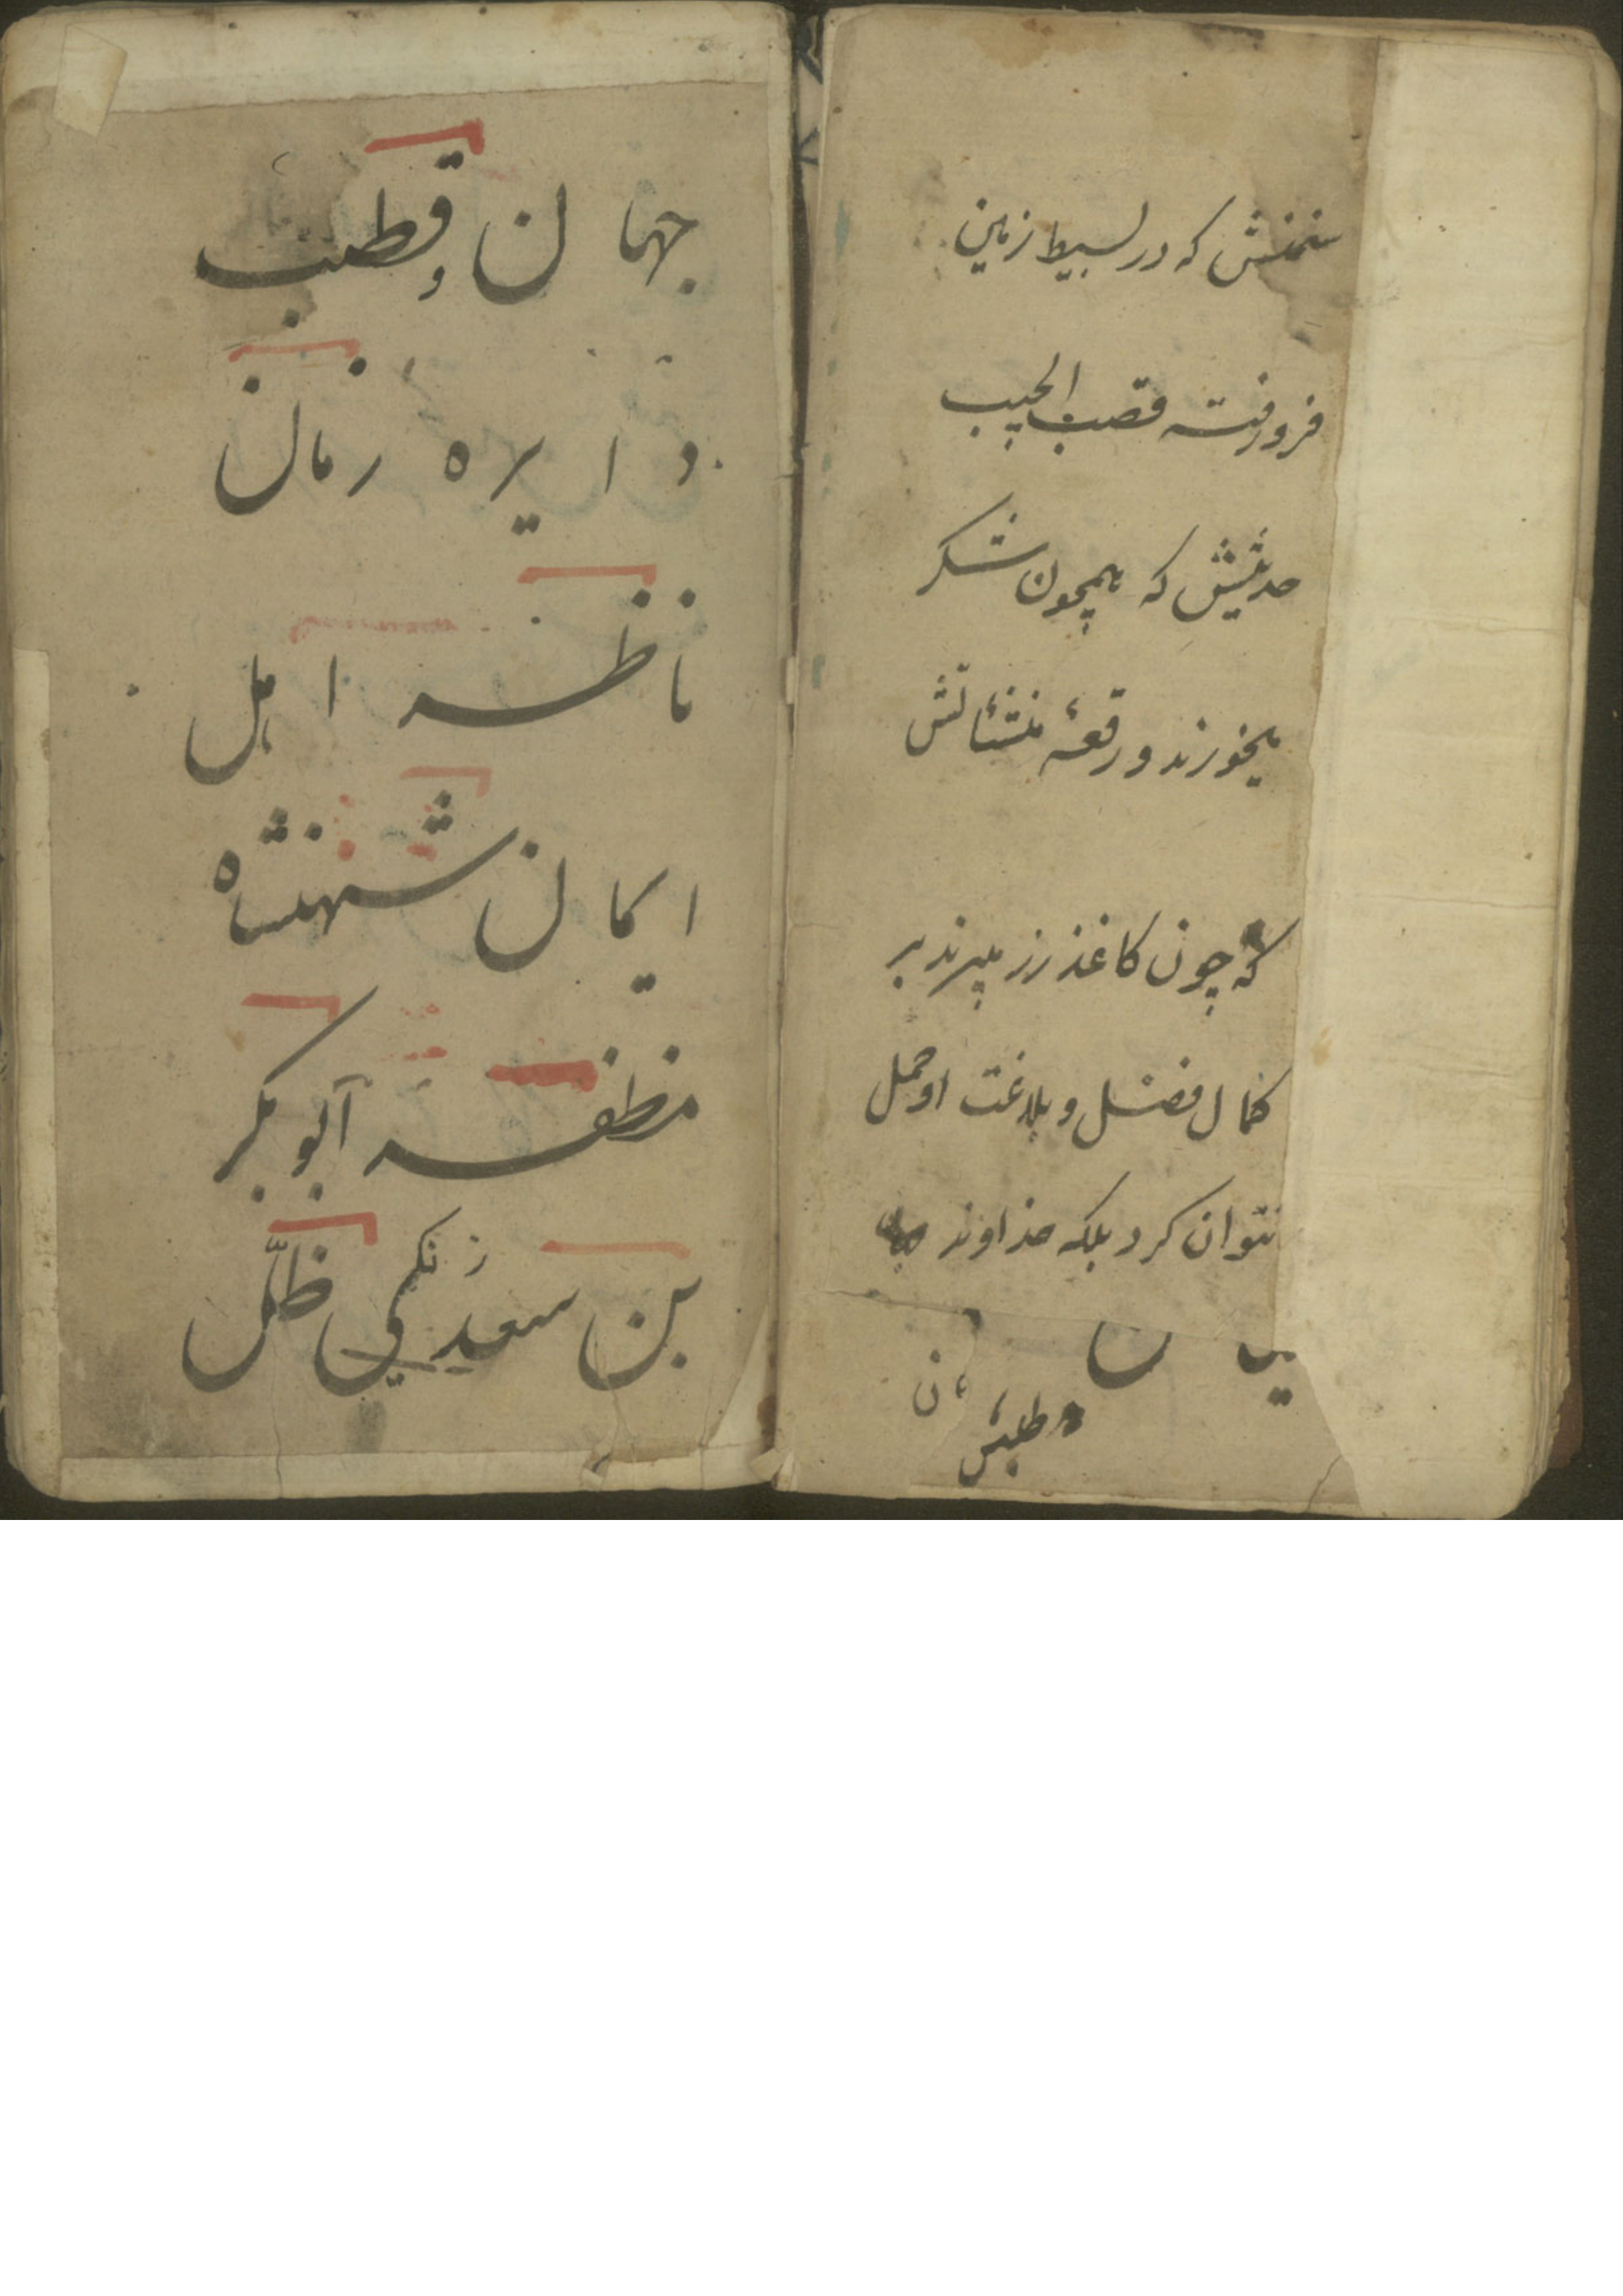 سخنش که در بسیط زمین
فرورفته قصب الجیب
حدیثش که همچون شکر
میخورند و رقعهٔ منشئاتش
که چون کاغذ زر میبرند بر
کمال فضل و بلاغت او حمل
نتوان کرد بلکه خداوند
جهان و قطب
دایره زمان
ناظر اهل
ایمان شهنشاه
مظفر ابوبکر
بن سعد زنکی ظلّ